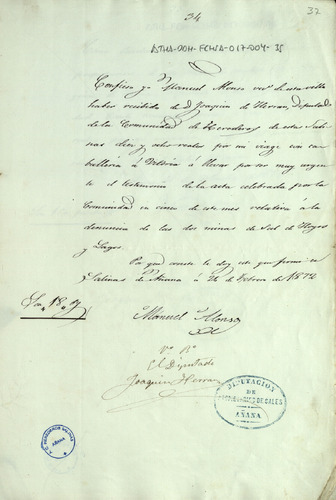 34
37
ATHA-DOH-FCHSA-017-004-35
Confieso yo Manuel Alonso vec.º de esta villa
haber recibido de D. Joaquin de Herran, Diputado
de la Comunidad de Herederos de estas Sali-
nas diez y ocho reales por mi viage con caba-
lleria á Vitoria á llevar por ser muy urgen
te el testimonio de la acta celebrada por la
Comunidad en cinco de este mes relativa á la
denuncia de las dos minas de Sal de Hoyos
y Lagos.
Para que conste le doy este que firmo en
Salinas de Añana á 24 de Febrero de 1872
Son 18 r.s
Manuel Alonso
V.º B.º
El Diputado
Joaquin Herran
DIPUTACION
DE
CALES
AÑANA
AÑANA